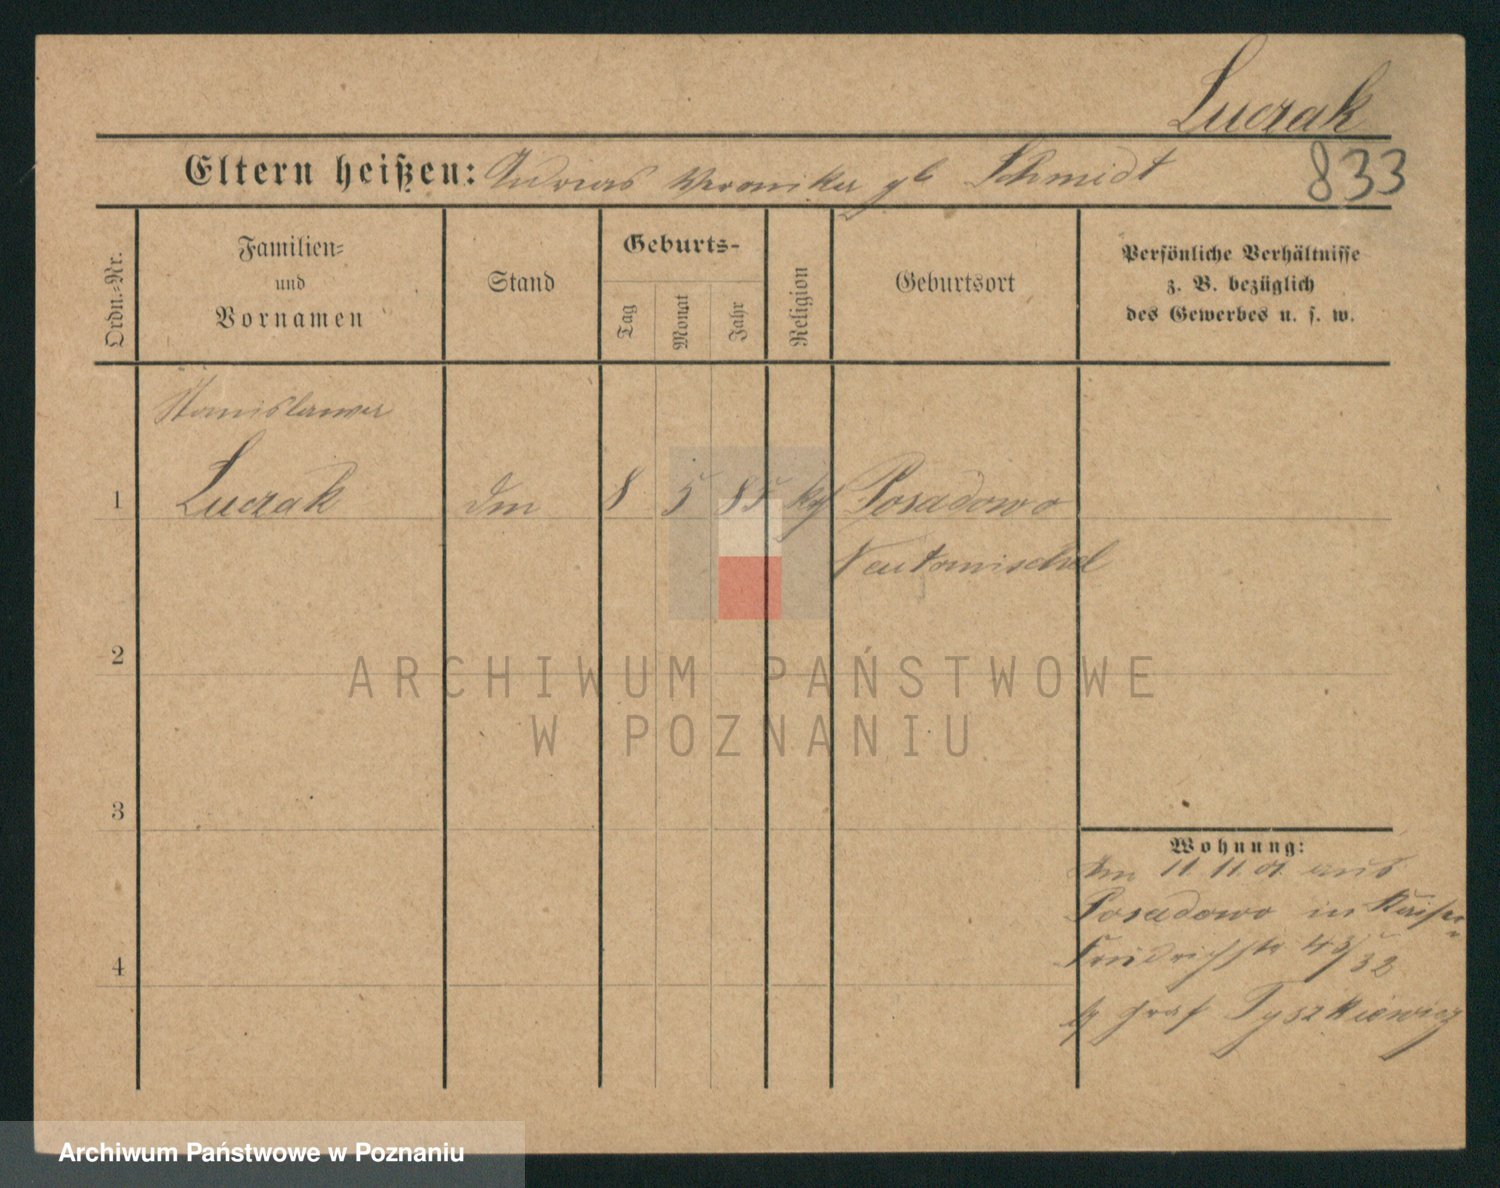 Luczak
833
Eltern heißen: Andreas Veronika gb Schmidt
Ordn.=Nr.
Familien=
und
Vornamen
Stand
Geburts-
Tag
Monat
Jahr
Religion
Geburtsort
Persönliche Verhältnisse
z. B. bezüglich
des Gewerbes u. s. w.
Stanislawa
1 Luczak 8 5 85 Posadowo
Neutomischel
2
ARCHIWUM PAŃSTWOWE
W POZNANIU
3
Wohnung:
11.11.01 aus
Posadowo in Kaiser
Friedrichstr
4
Graf Tyszkiewicz
Archiwum Państwowe w Poznaniu